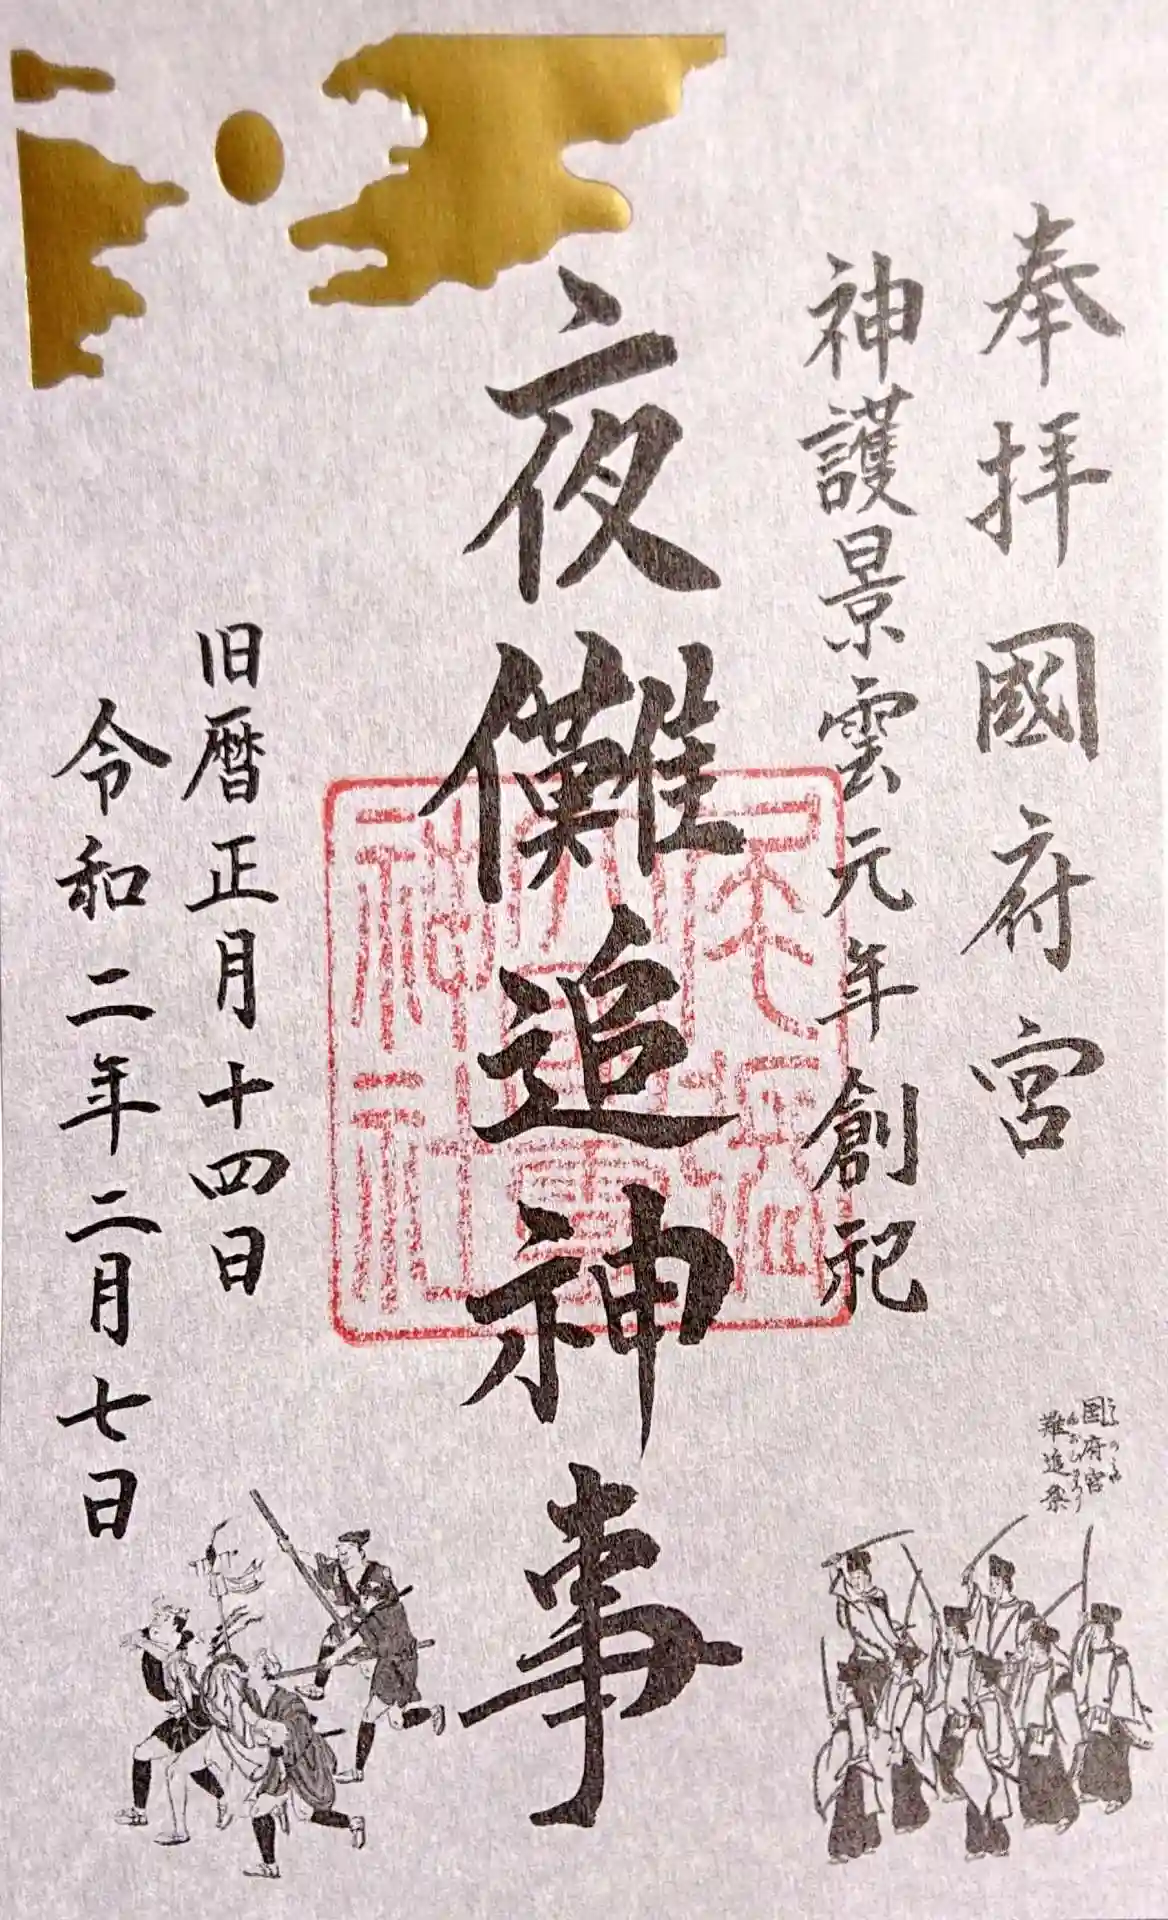 奉拝 國府宮
神護景雲元年創祀
夜儺追神事
旧暦正月十四日
令和二年二月七日
尾張
大國霊
神社
国府宮
難追祭